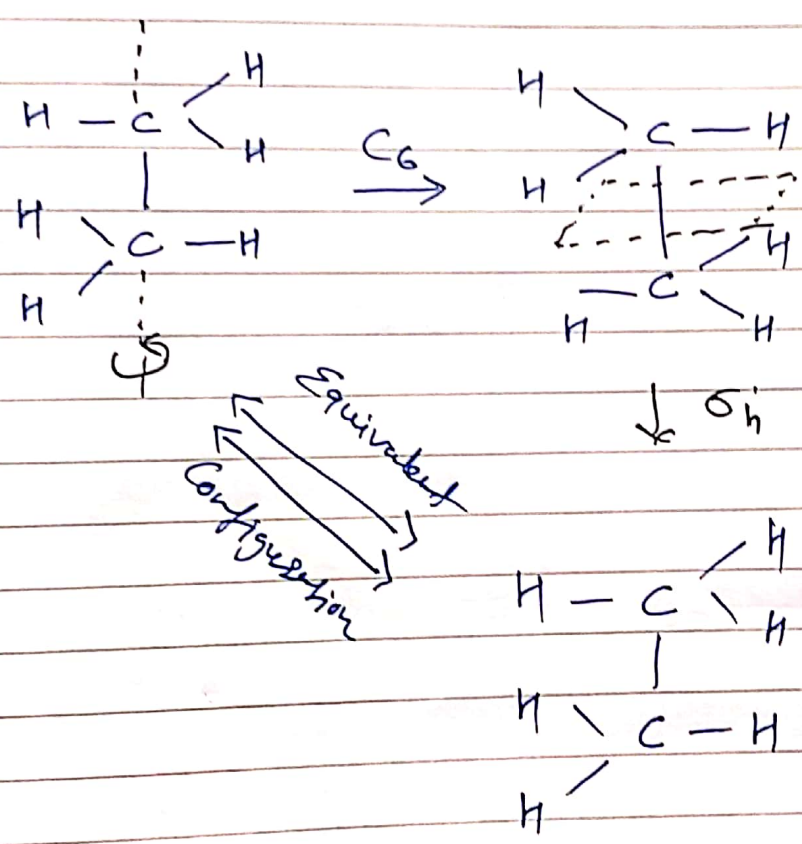 H
H – C
H
C6
H
C – H
H
H
C – H
H
H
– C
H
H
H
σh
Equivalent
Configuration
H
H – C
H
H
C – H
H